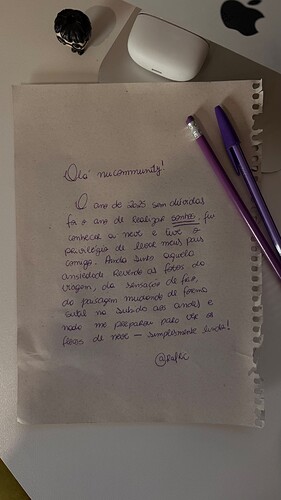 Olá nucommunity!
O ano de 2025 sem dúvidas
foi o ano de realizar sonhos, fui
conhecer a neve e tive o
privilégio de levar meus pais
comigo. Ainda sinto aquela
ansiedade revendo as fotos da
viagem, da sensação de frio,
da paisagem mudando de forma
sutil na subida aos andes e
nada me preparou para ver os
flocos de neve – simplesmente lindo!